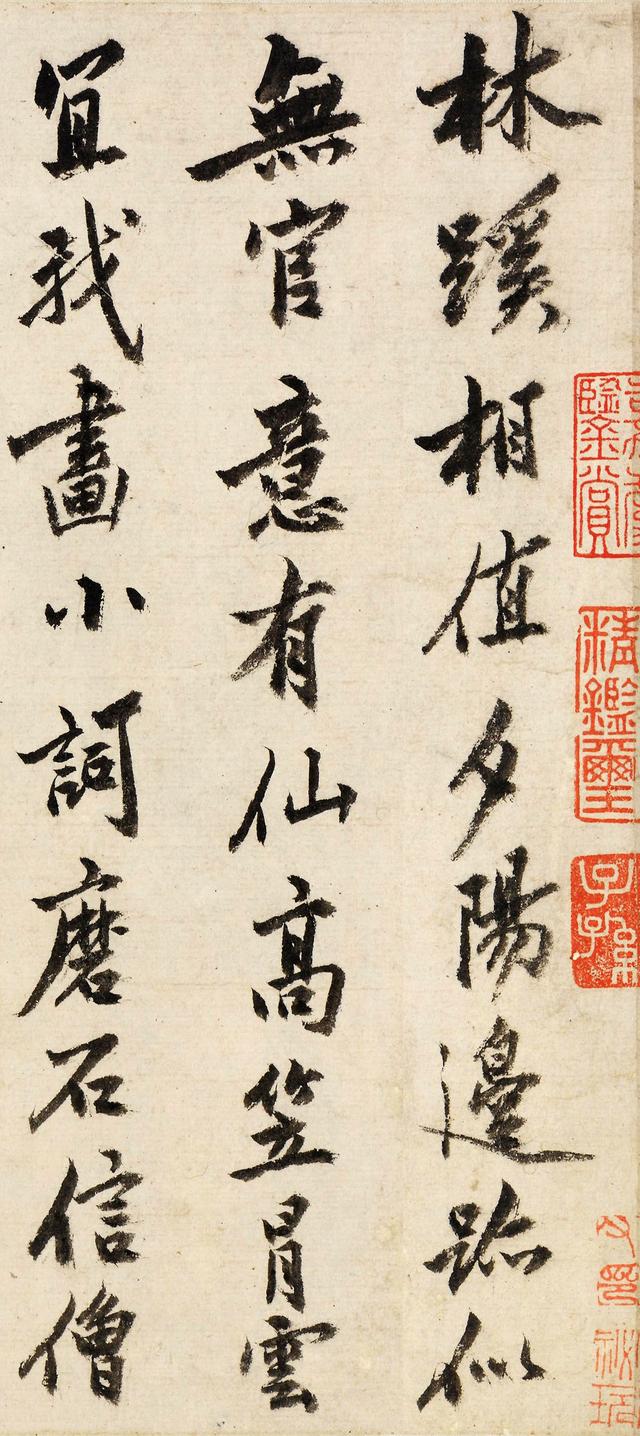 林蹊相值夕陽邊跡似
無官意有仙高笠冒雲
宜我畫小詞磨石信僧
鑒賞
精鑑璽
子孫